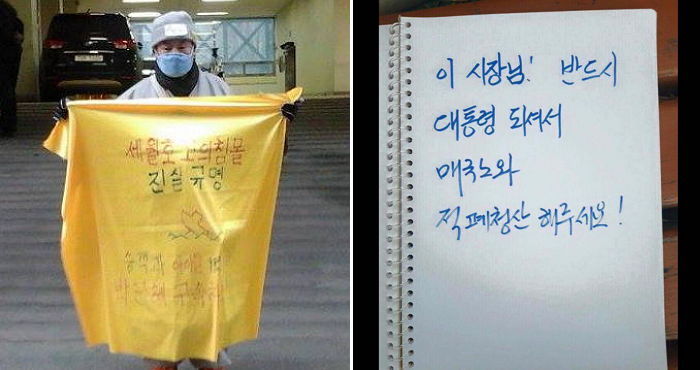 세월호 고의침몰
진실 규명
승객과 아이들
박근혜
이 시장님! 반드시
대통령 되셔서
매국노와
적폐청산 해주세요!